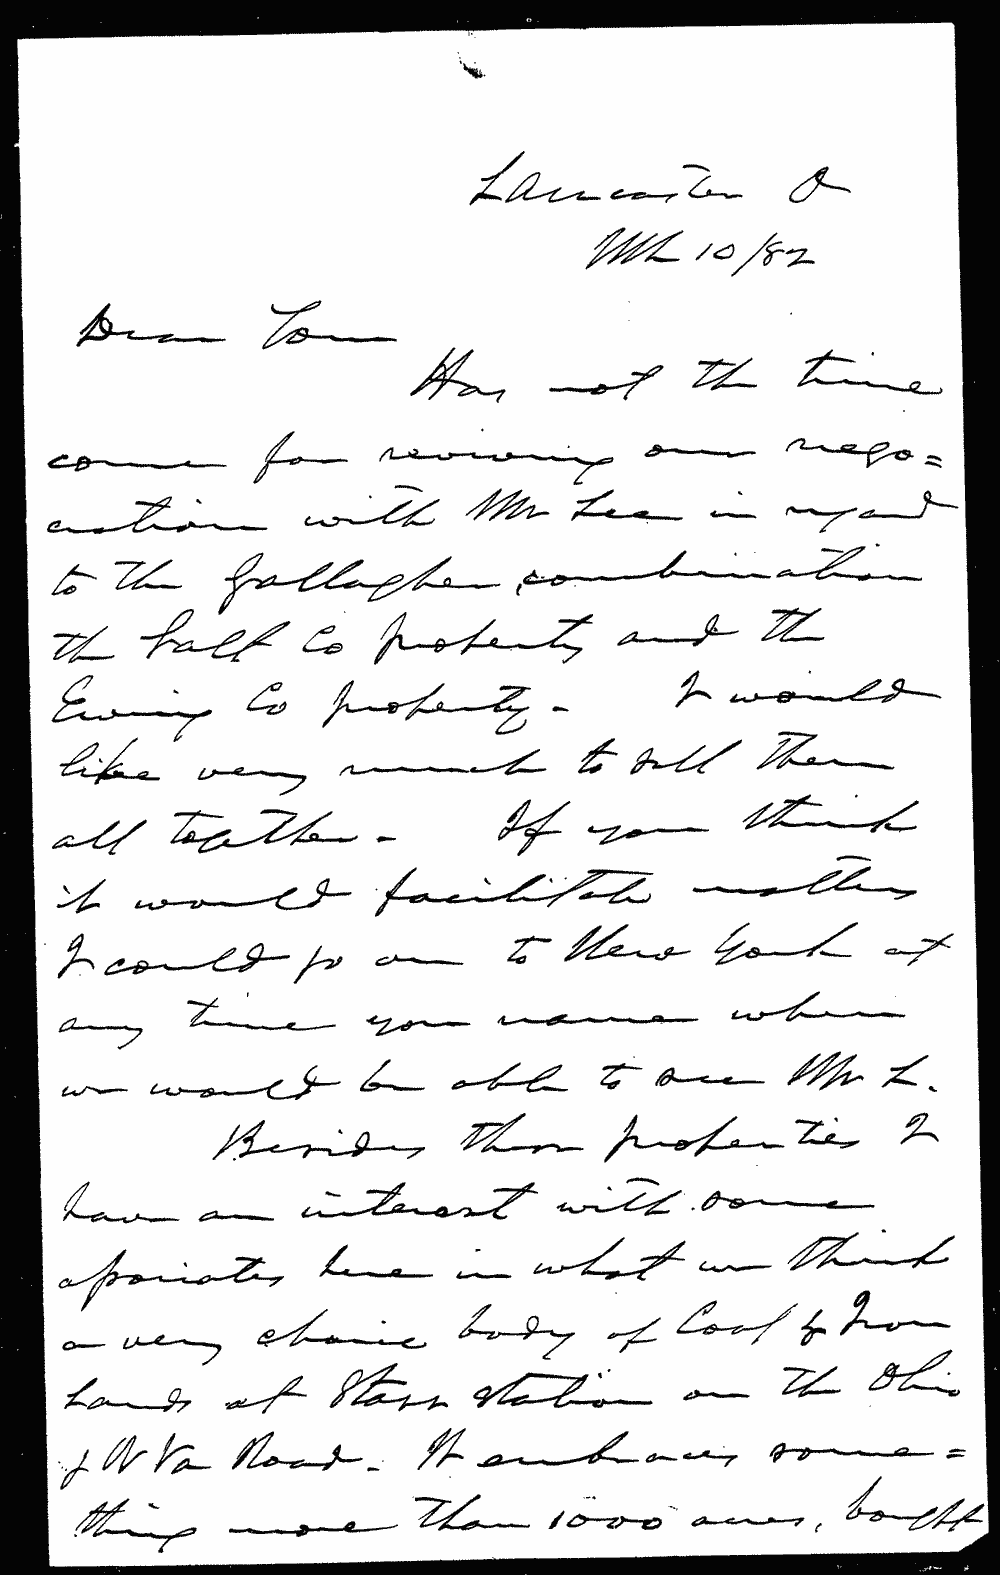 Lancaster O
Mh 10/82
Dear Tom
Has not the time
come for reviving our nego=
ciation with Mr Lee in regard
to the Gallagher combination
the Salt Co property and the
Ewing Co property - I would
like very much to sell them
all together - If you think
it would facilitate matters
I could go on to New York at
any time you name when
we would be able to see Mr L.
Besides these properties I
have an interest with some
associates here in what we think
a very choice body of Coal & Iron
Lands at Starr Station on the Ohio
& W Va Road. It embraces some=
thing more than 1000 acres, bought